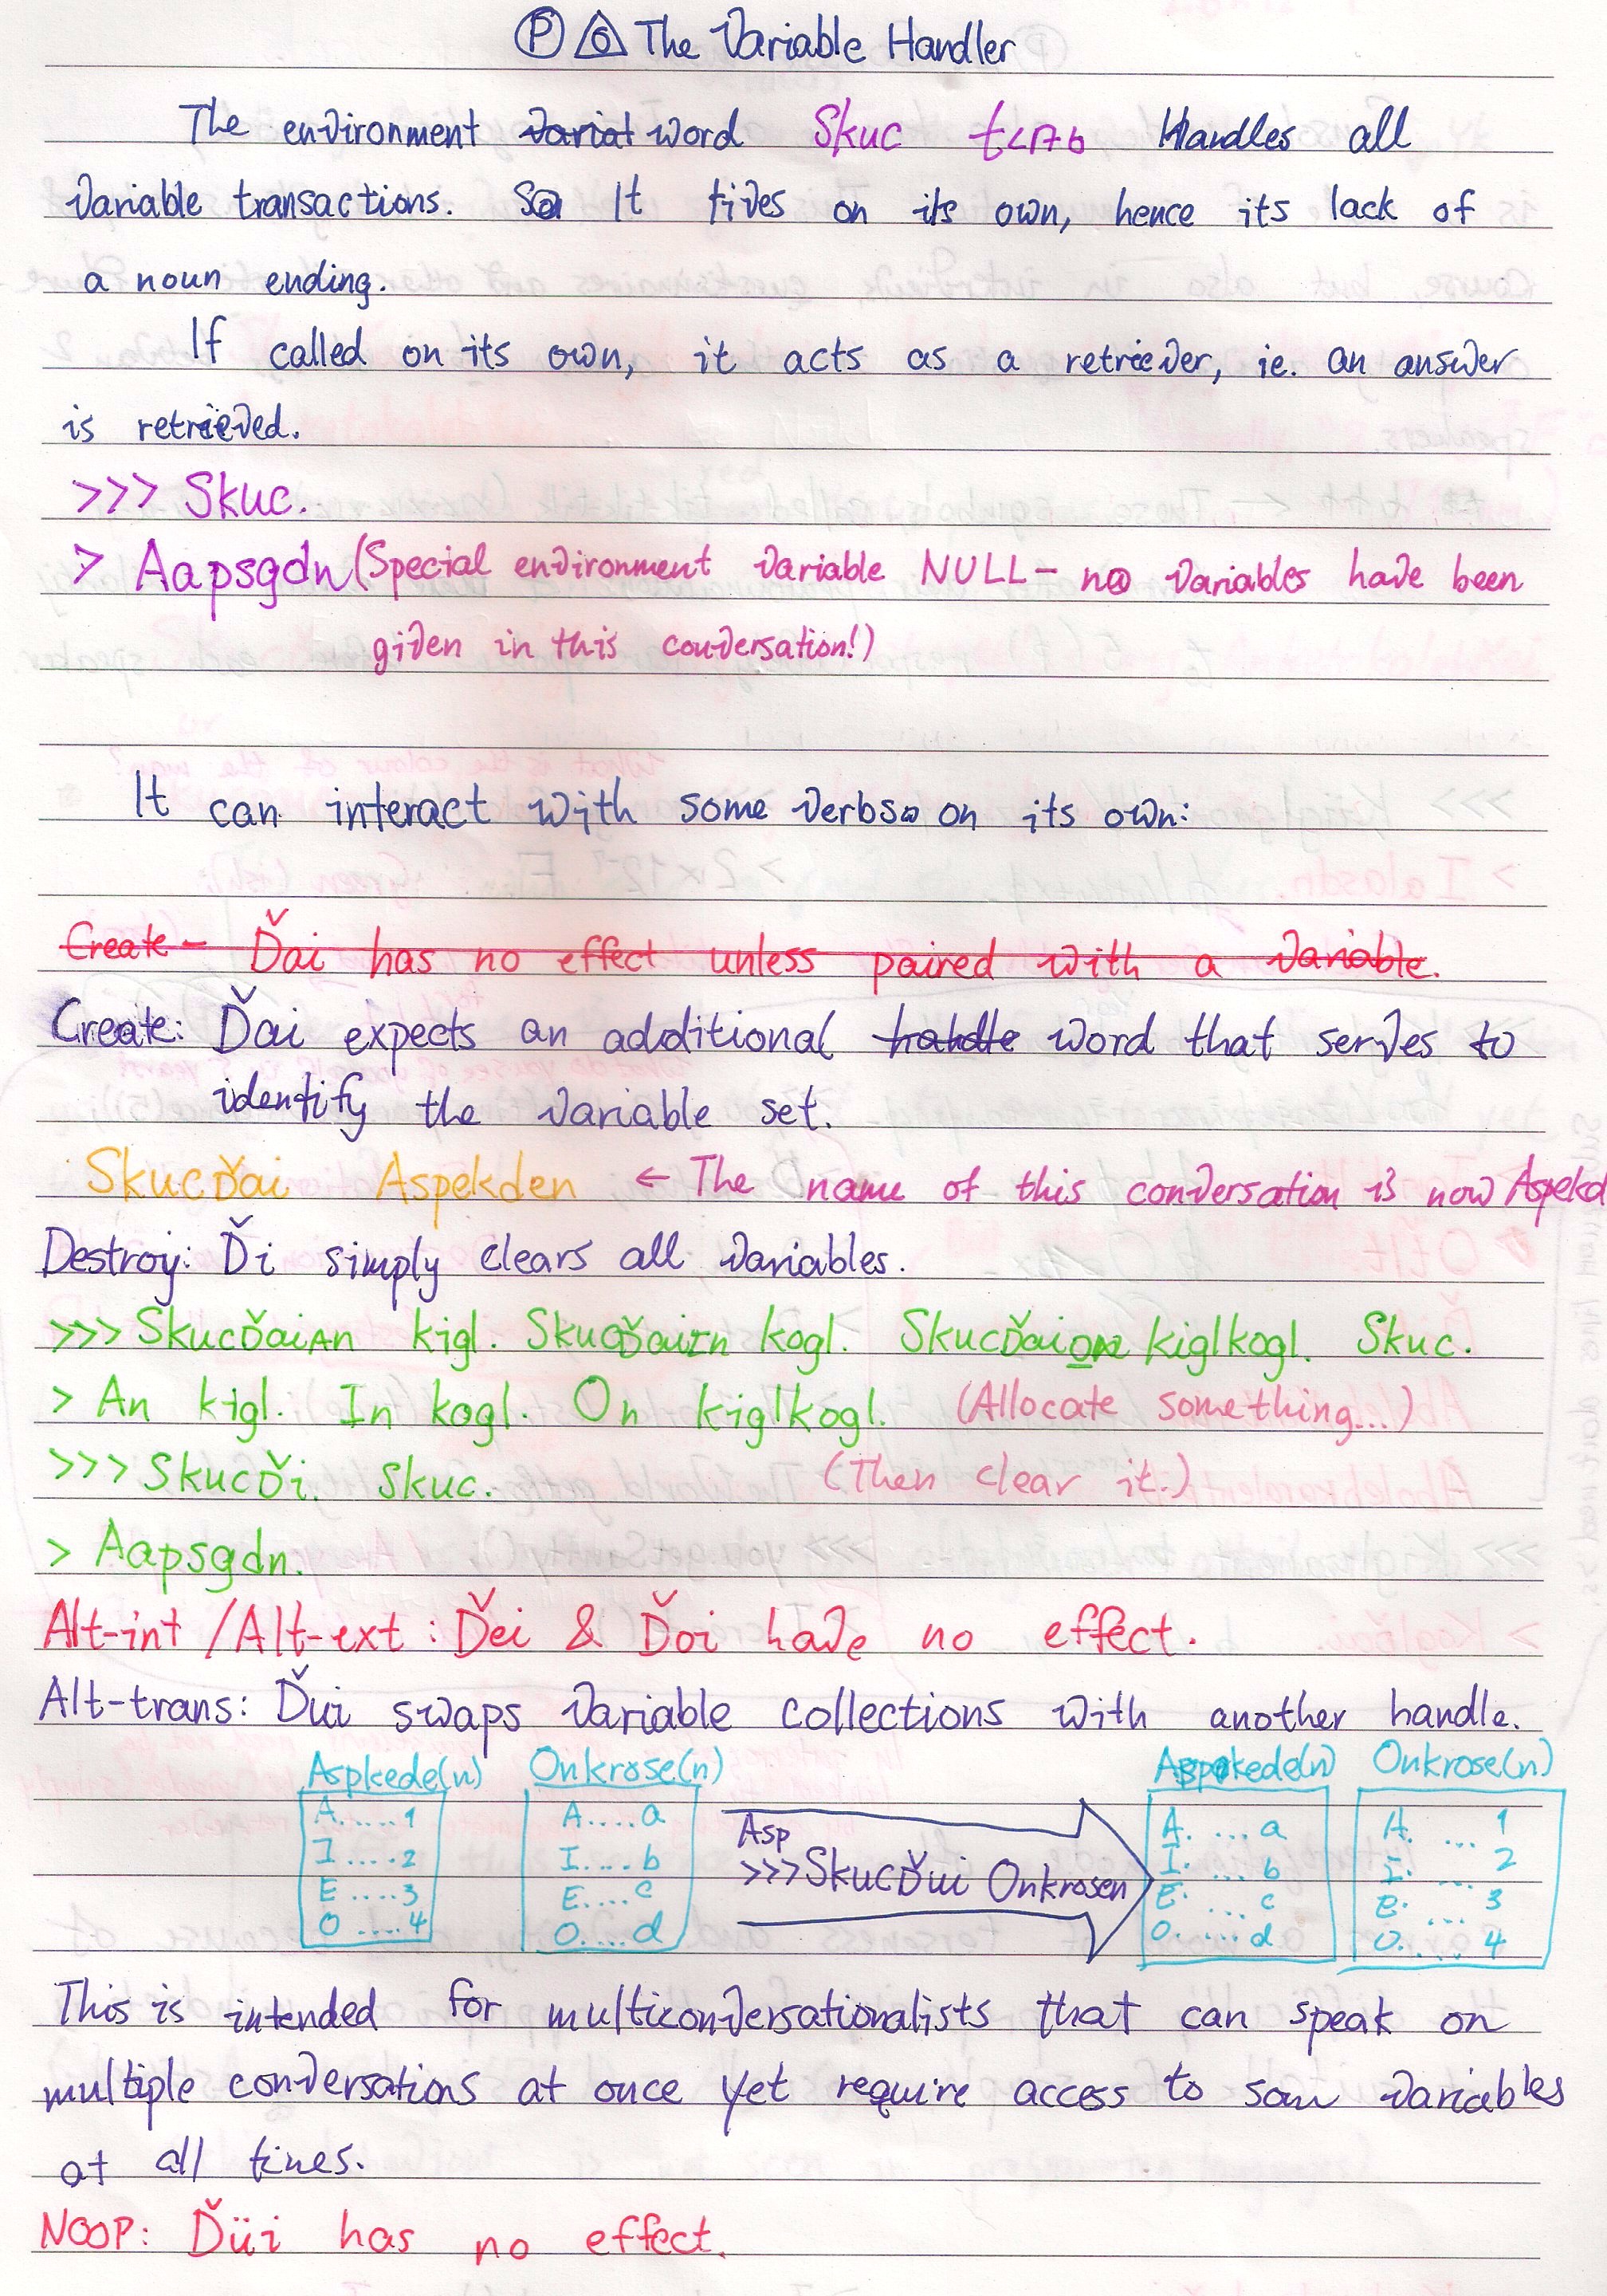 Ⓟ The Variable Handler
The environment variat word Skuc Handles all
variable transactions. So It lives on its own, hence its lack of
a noun ending.
If called on its own, it acts as a retriever, ie. an answer
is retrieved.
>>> Skuc.
> Aapsgdn (Special environment variable NULL - no variables have been
given in this conversation!)
It can interact with some verbs on its own:
Create - Ďai has no effect unless paired with a variable.
Create: Ďai expects an additional handle word that serves to
identify the variable set.
SkucĎai Aspekden ← The name of this conversation is now Aspekd
Destroy: Ďi simply clears all variables.
>>> SkucĎaiAn kigl. SkucĎaiIn kogl. SkucĎaiOn kiglkogl. Skuc.
> An kigl. In kogl. On kiglkogl. (Allocate something...)
>>> SkucĎi. Skuc. (Then clear it.)
> Aapsgdn.
Alt-int / Alt-ext : Ďei & Ďoi have no effect.
Alt-trans: Ďui swaps variable collections with another handle.
Aspkede(n) Onkrose(n) Aspekede(n) Onkrose(n)
A......1 A....a Asp A. ...a A. ... 1
I.....2 I....b >>> SkucĎui Onkrosen I. ... b I. ... 2
E ....3 E....c E. ... c E. ... 3
O ....4 O....d O. ....d O. .... 4
This is intended for multiconversationalists that can speak on
multiple conversations at once yet require access to som variables
at all times.
NOOP: Ďüi has no effect.